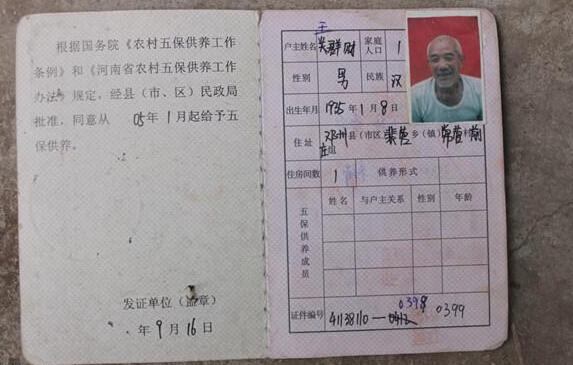 根据国务院《农村五保供养工作
条例》和《河南省农村五保供养工作
办法》规定，经县（市、区）民政局
批准，同意从 05年1月起给予五
保供养。
发证单位（盖章）
年9月16日
王
户主姓名 群财 家庭人口 1
性别 男 民族 汉
出生年月 1935年1月8日
住址 邓州县（市区 裴营乡（镇）常营村前
庄组
住房间数 1 供养形式
五保供养成员
姓名 与户主关系 性别 年龄
0398
证件编号 41138110— 0399